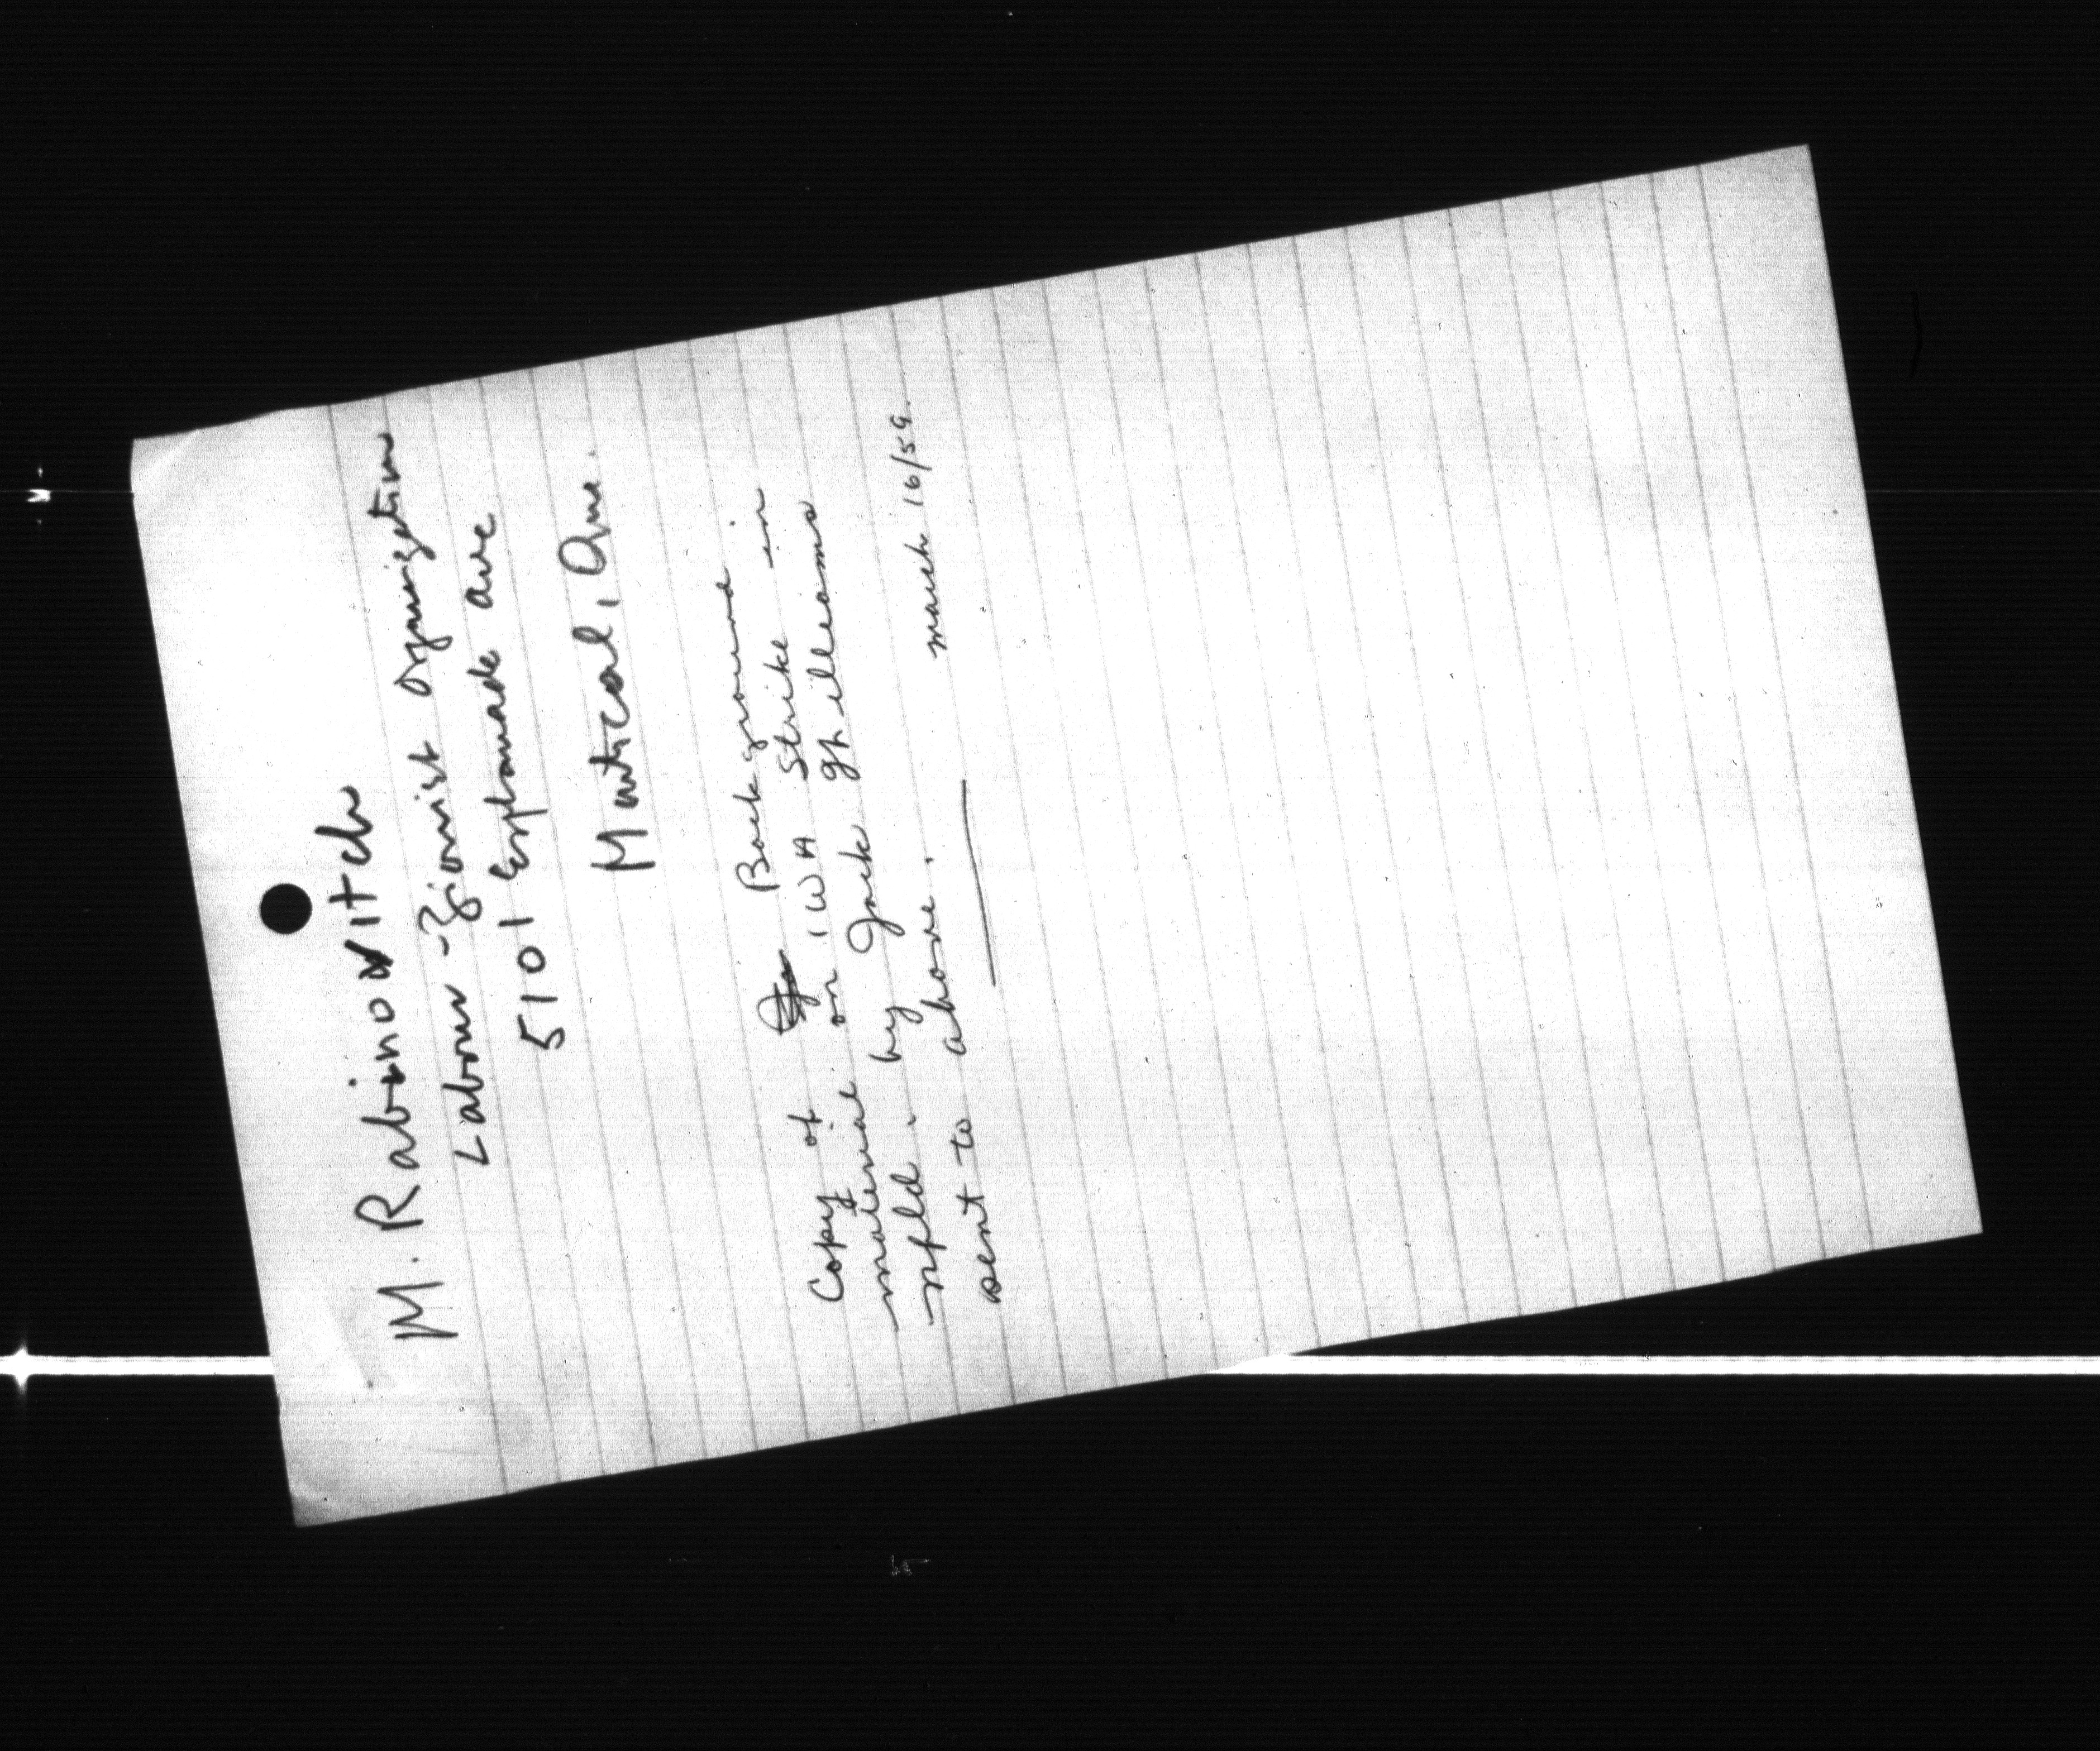 M. Rabinovitch
Labour-Zionist Organization
5101 Esplanade Ave
Montreal, Que.
Copy of Background
material on IWA strike in
Nfld. by Jack Gh illiams
sent to above.
March 16/59.